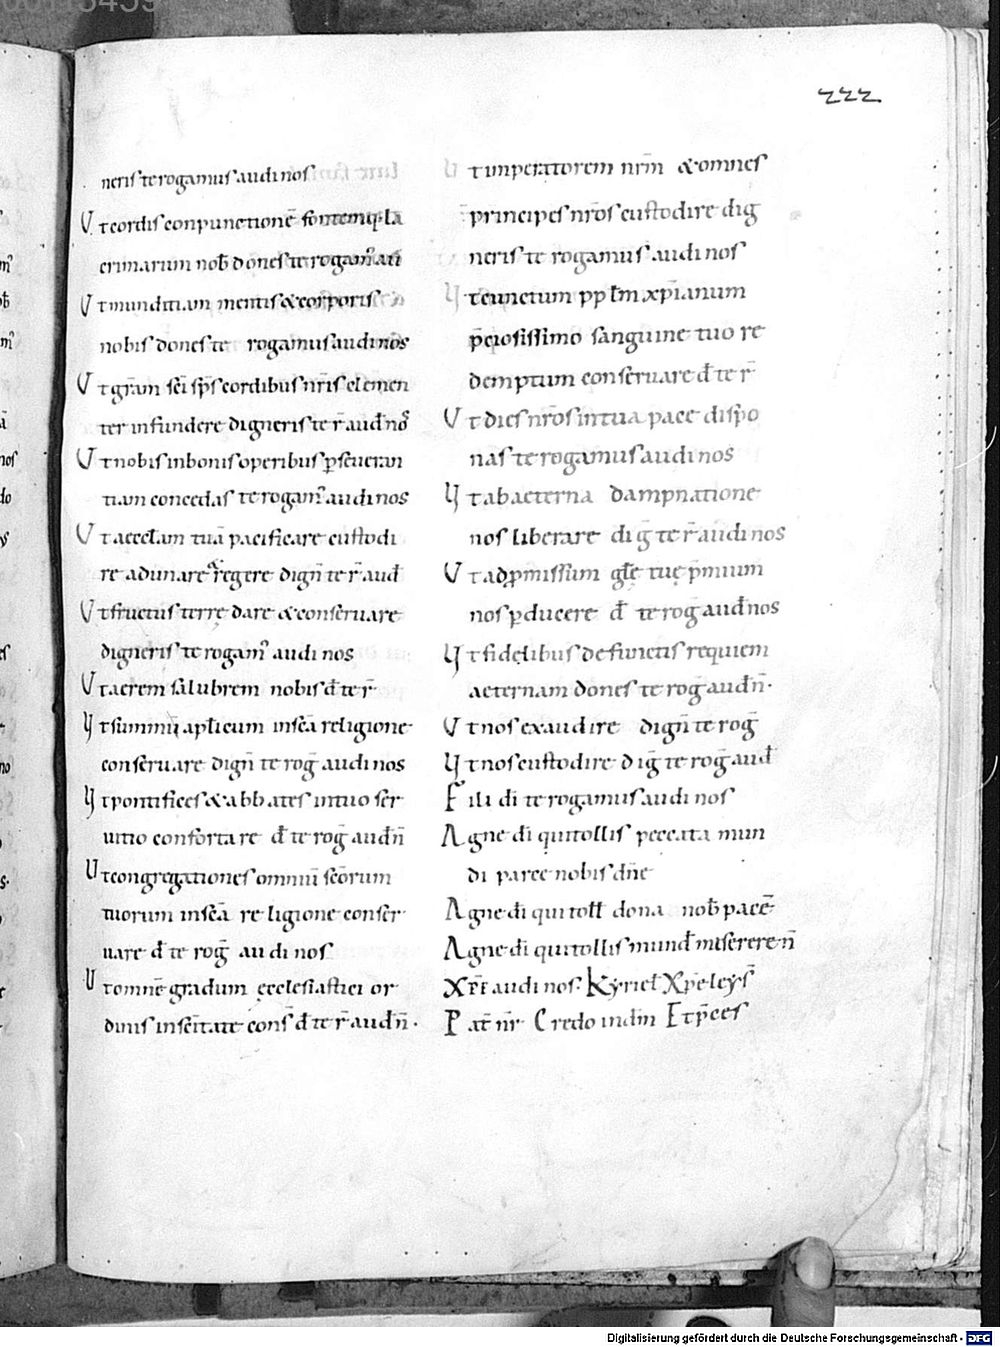 222
neris te rogamus audi nos
Ut cordis conpunctionē fontemq; la
crimarum nob̄ dones te rogam᾿ au
Ut munditiam mentis & corporis
nobis dones te rogamus audi nos
Ut gr̄am sc̄i sp̄s cordibus nr̄is clemen
ter infundere digneris te r̄ aud̄ no᷒
Ut nobis in bonis operibus p̱seueran
tiam concedas te rogam᾿ audi nos
Ut aeccl̄am tuā pacificare custodi
re adunare & regere dign̄ te r̄ aud̄
Ut fructus terrę dare & conseruare
digneris te rogam᾿ audi nos
Ut aerem salubrem nobis d̄ te r̄
Ut summū ap̄licum in sc̄a religione
conseruare dign̄ te roḡ audi nos
Ut pontifices & abbates in tuo ser
uitio confortare d̄ te roḡ aud̄ n̄
Ut congregationes omniū sc̄orum
tuorum in sc̄a religione conser
uare d̄ te roḡ audi nos
Ut omnē gradum ęcclesiastici or
dinis in sc̄itate cons̄ d̄ te r̄ aud̄ n̄.
Ut imperatorem nr̄m & omnes
principes nr̄os custodire dig
neris te rogamus audi nos
Ut cunctum ppl̄m xp̄ianum
p̄ciosissimo sanguine tuo re
demptum conseruare d̄ te r̄
Ut dies nr̄os in tua pace dispo
nas te rogamus audi nos
Ut ab aeterna dampnatione
nos liberare diḡ te r̄ audi nos
Ut ad p̱missum gl̄ę tuę p̄mium
nos p̱ducere d̄ te roḡ aud̄ nos
Ut fidelibus defunctis requiem
aeternam dones te roḡ aud̄ n̄.
Ut nos exaudire dign̄ te roḡ
Ut nos custodire diḡ te roḡ aud̄
Fili dī te rogamus audi nos
Agne dī qui tollis peccata mun
di parce nobis dn̄e
Agne dī qui toll̄ dona nob̄ pacē
Agne dī qui tollis mund̄ miserere n̄
Xp̄ē audi nos. Kyriel̄ Xp̄eleys̄
Pat̄ nr̄ Credo in dm̄ Et p̄ces
Digitalisierung gefördert durch die Deutsche Forschungsgemeinschaft - DFG